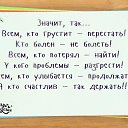 Значит, так...
Всем, кто грустит - перестать!
Кто болен - не болеть!
Всем, кто потерял - найти!
У кого проблемы - разгрести!
Всем, кто улыбается - продолжать!
А кто счастлив - так держать!!